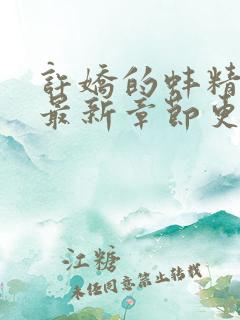 許嬌的蚌精
最新章節更
江糖
未经同意禁止转载